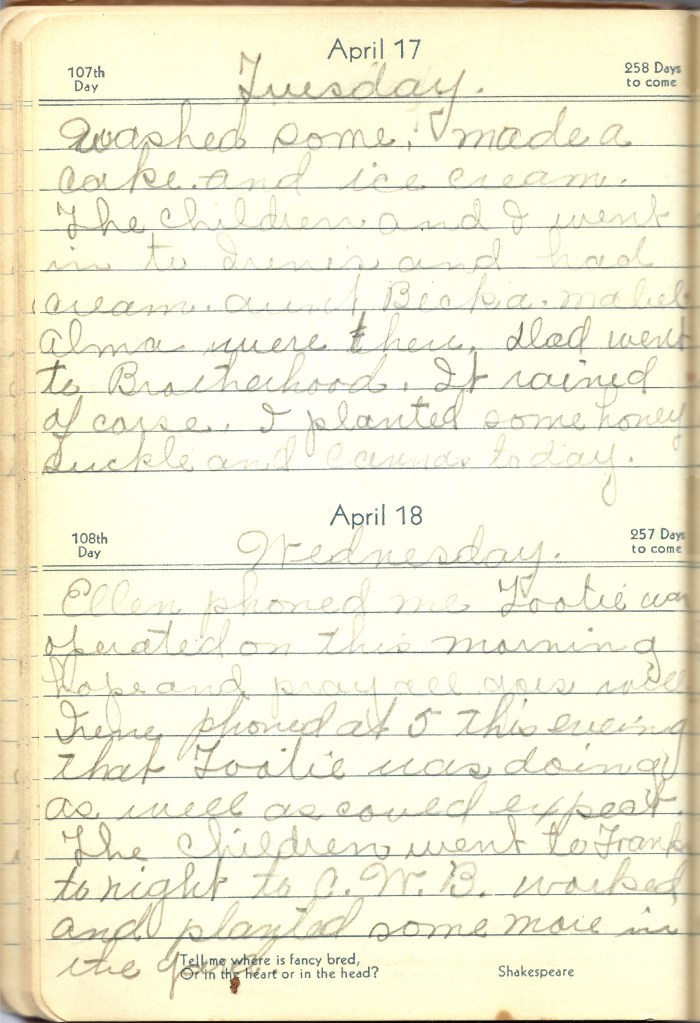 April 17
107th
Day
Tuesday.
258 Days
to come
Washed some. I made a
cake. and ice cream.
The children and I went
in to Irenes and had
cream. aunt Becka. Mabel
Alma were there. Dad went
to Brotherhood. It rained
of corse. I planted some honey
suckle and cannas today.
April 18
108th
Day
Wednesday.
257 Days
to come
Ellen phoned me Tootie was
operated on this morning
hope and pray all goes well
Irene phoned at 5 this evening
that Tootie was doing
as well as could expect.
The children went to Franks
to night to C. W. B. worked
and planted some more in
the
Tell me where is fancy bred,
Or in the heart or in the head?
Shakespeare